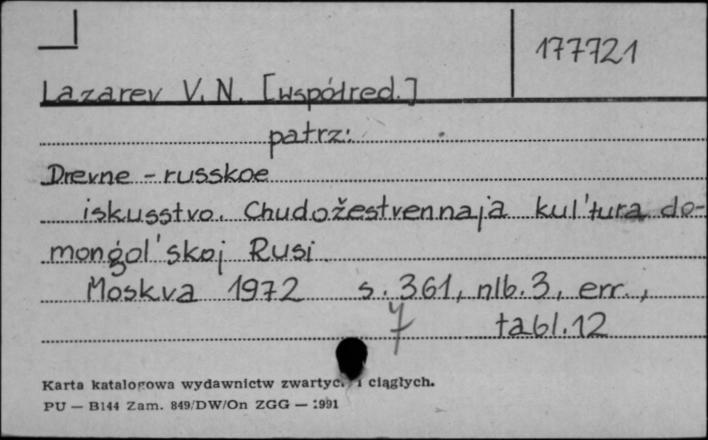 177721
Lazarev V.N. [współred.]
patrz:
Drevne - russkoe
iskusstvo. Chudožestvennaja kul'tura do-
mongol'skoj Rusi
Moskva 1972 s. 361, nlb. 3, err.,
tabl. 12
Karta katalogowa wydawnictw zwartyc. i ciągłych.
PU — B144 Zam. 849/DW/On ZGG — 1991